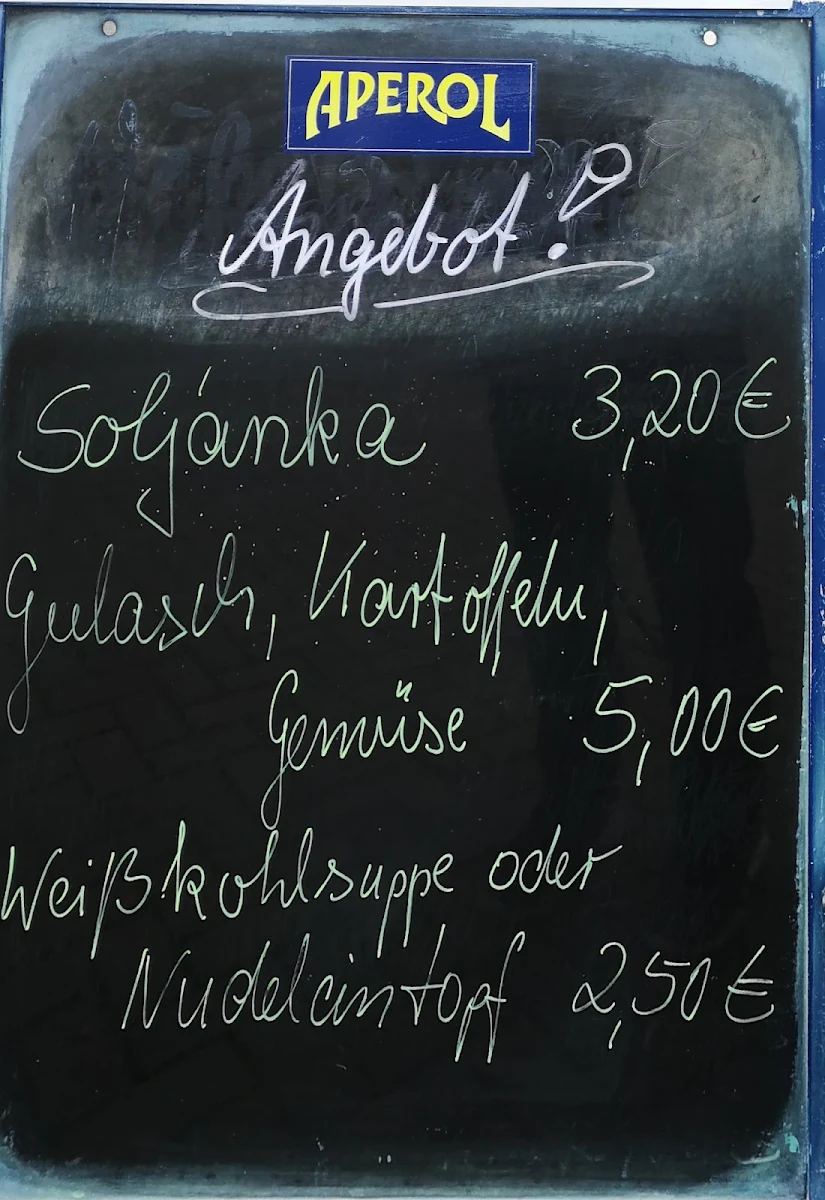 APEROL
Angebot!
Soljánka 3,20 €
Gulasch, Kartoffeln,
Gemüse 5,00 €
Weißkohlsuppe oder
Nudeleintopf 2,50 €